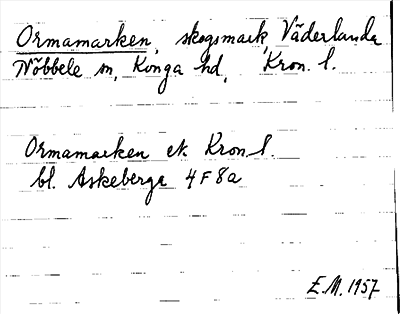 Ormamarken, skogsmark, Väderlanda
Nöbbele sn, Konga hd, Kron. l.
Ormamarken ek Kron. l.
bl. Askeberga 4 F 8a
E.M. 1957